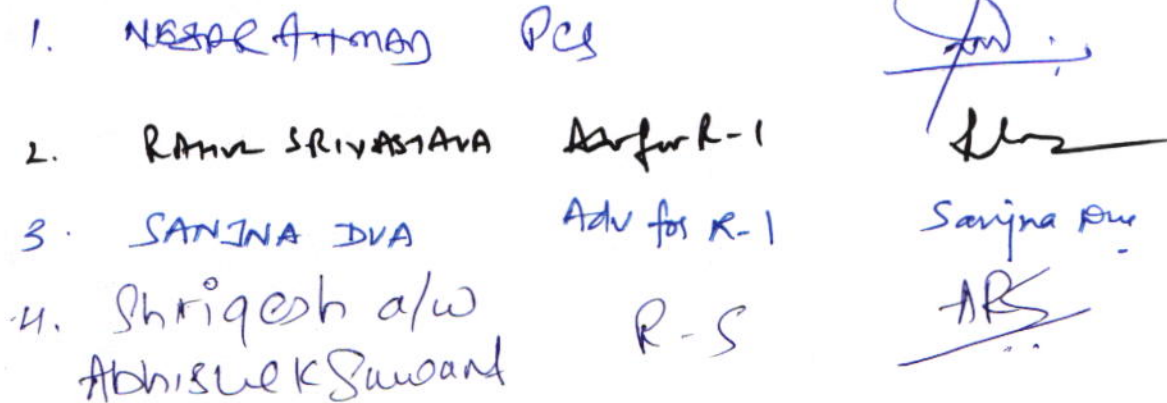 1. NESAR AHMAD PCS
2. RAHUL SRIVASTAVA Adv for R-1
3. SANJNA DVA Adv for R-1 Sanjna Dua
4. Shrigesh a/w R-5
Abhishek Sawant ARS